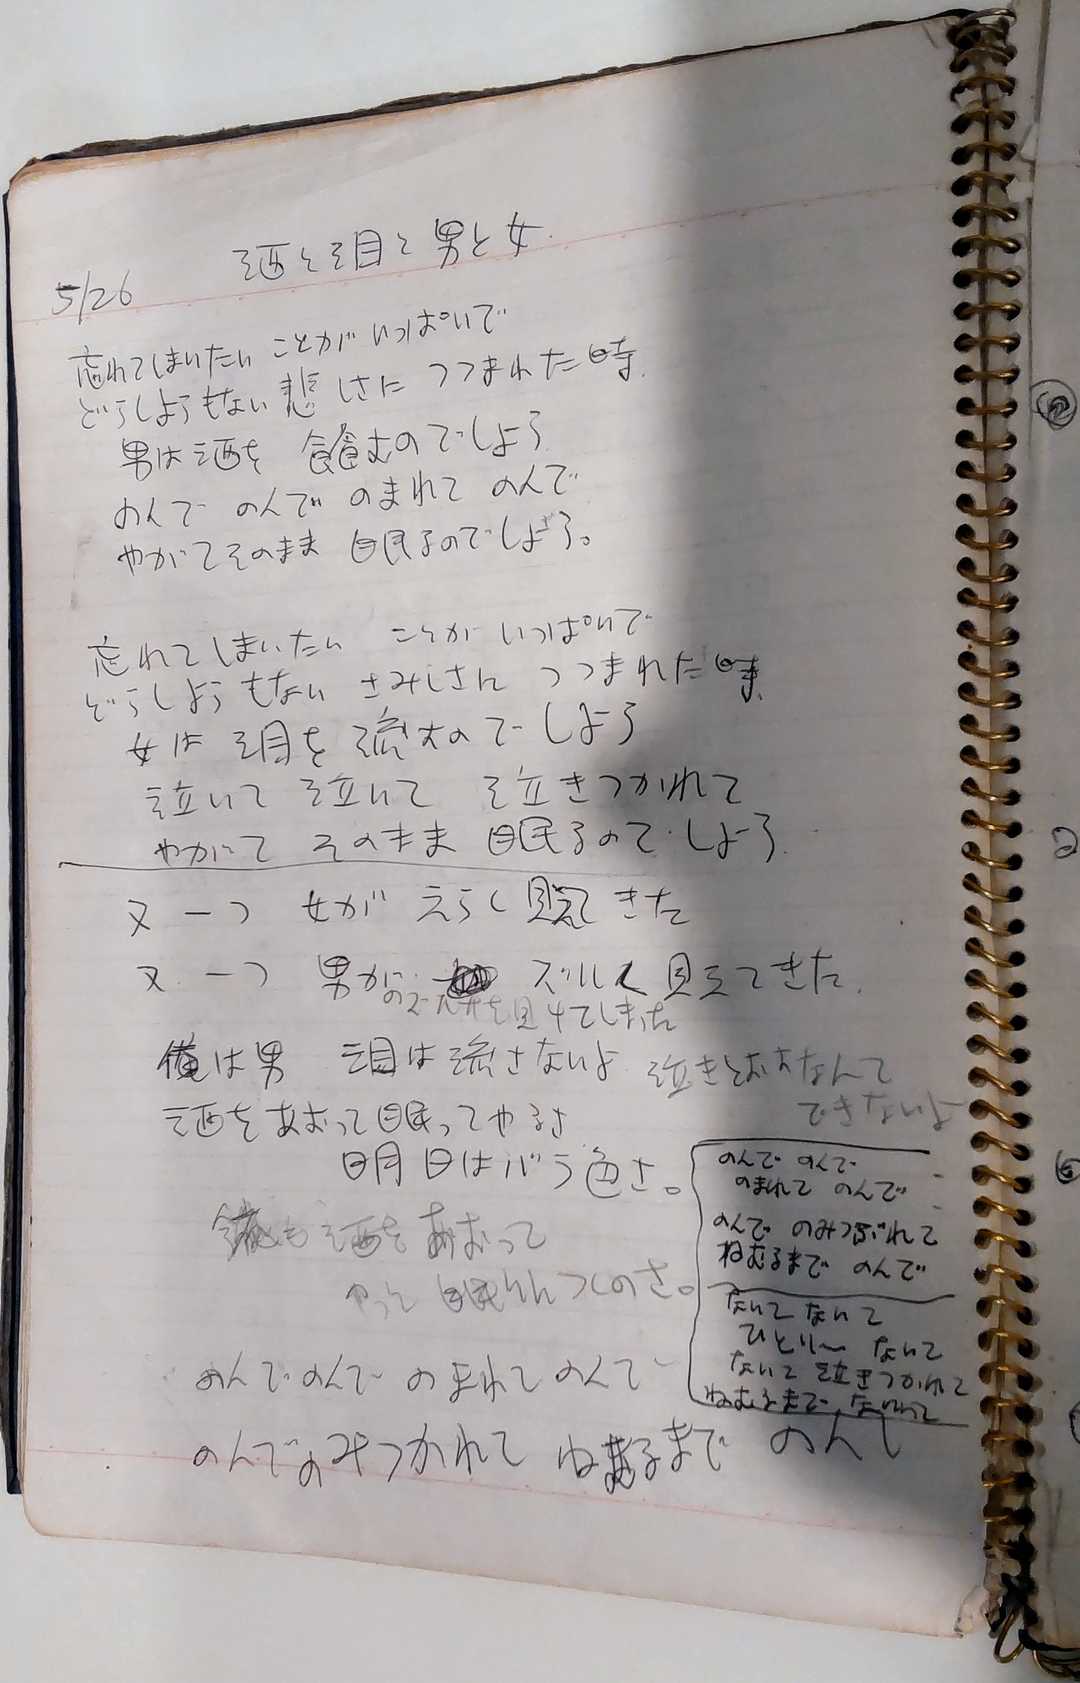 酒と泪と男と女
5/26
忘れてしまいたい ことが いっぱいで
どうしようもない 悲しさに つつまれた時
男は酒を 飲むのでしょう
のんで のんで のまれて のんで
やがてそのまま 眠るのでしょう。
忘れてしまいたい ことが いっぱいで
どうしようもない さみしさに つつまれた時
女は 泪を 流すのでしょう
泣いて 泣いて 泣きつかれて
やがて そのまま 眠るのでしょう
又一つ 女が えらく 見えてきた
又一つ 男が ズルく 見えてきた
のズルさを見せてしまった
俺は男 泪は流さないよ 泣きとおすなんて
できないよ
酒をあおって眠ってやるさ
明日はバラ色さ。
俺も酒をあおって
やっと 眠りにつくのさ。
のんで のんで
のまれて のんで
のんで のみつぶれて
ねむるまで のんで
ないて ないて
ひとり〜 ないて
ないて 泣きつかれて
ねむるまで ないて
のんで のんで のまれて のんで
のんで のみつかれて ねむるまで のんで